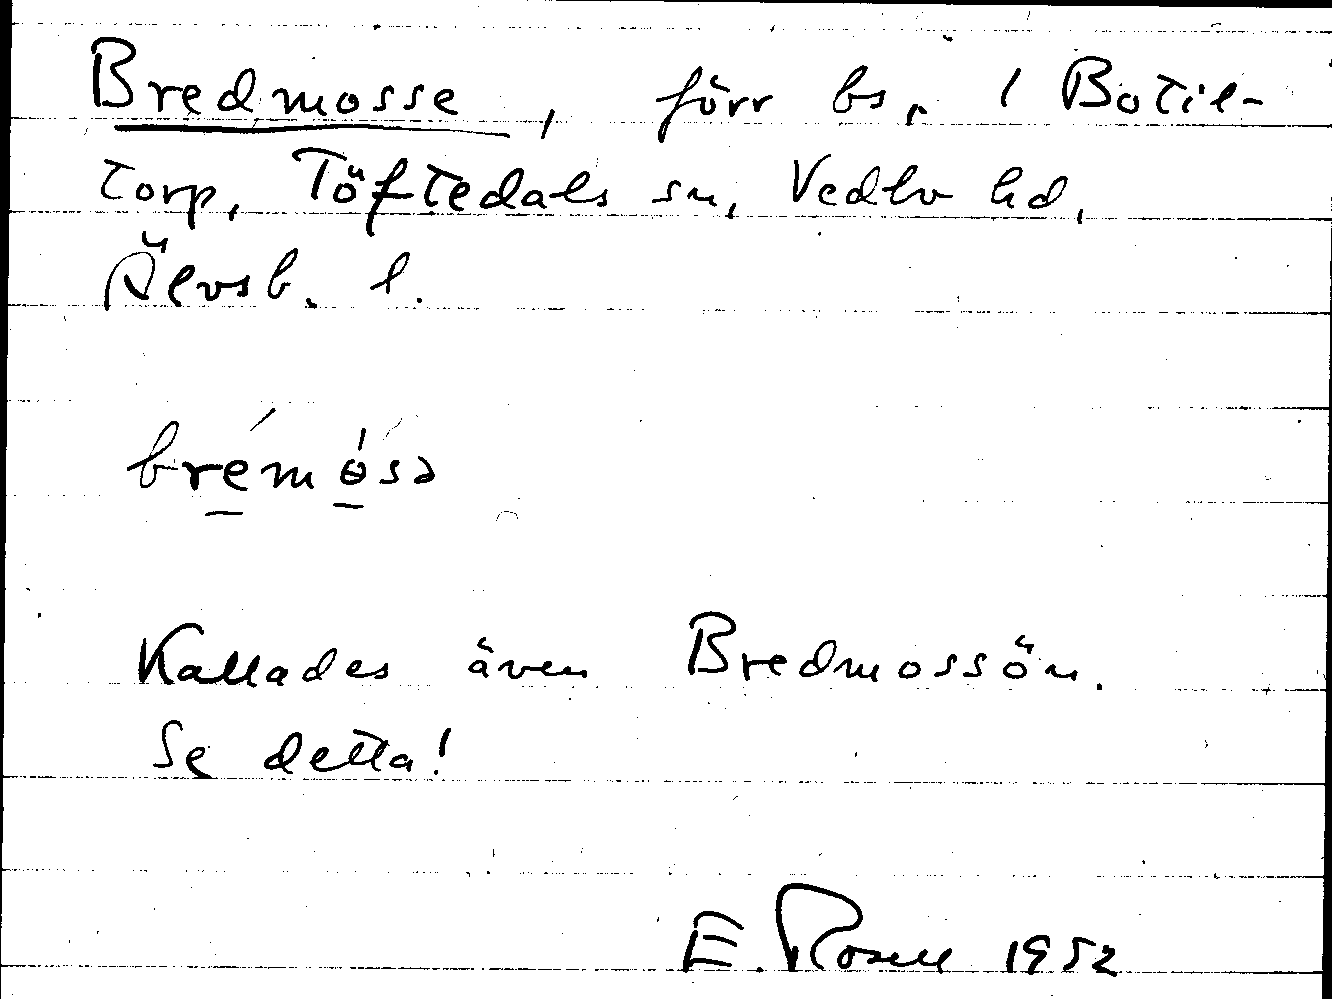 Bredmosse, förr bs. i Botil-
torp, Töftedals sn, Vedbo hd,
Älvsb. l.
brémɵ́sə
Kallades även Bredmossön.
Se detta!
E. Rosell 1952